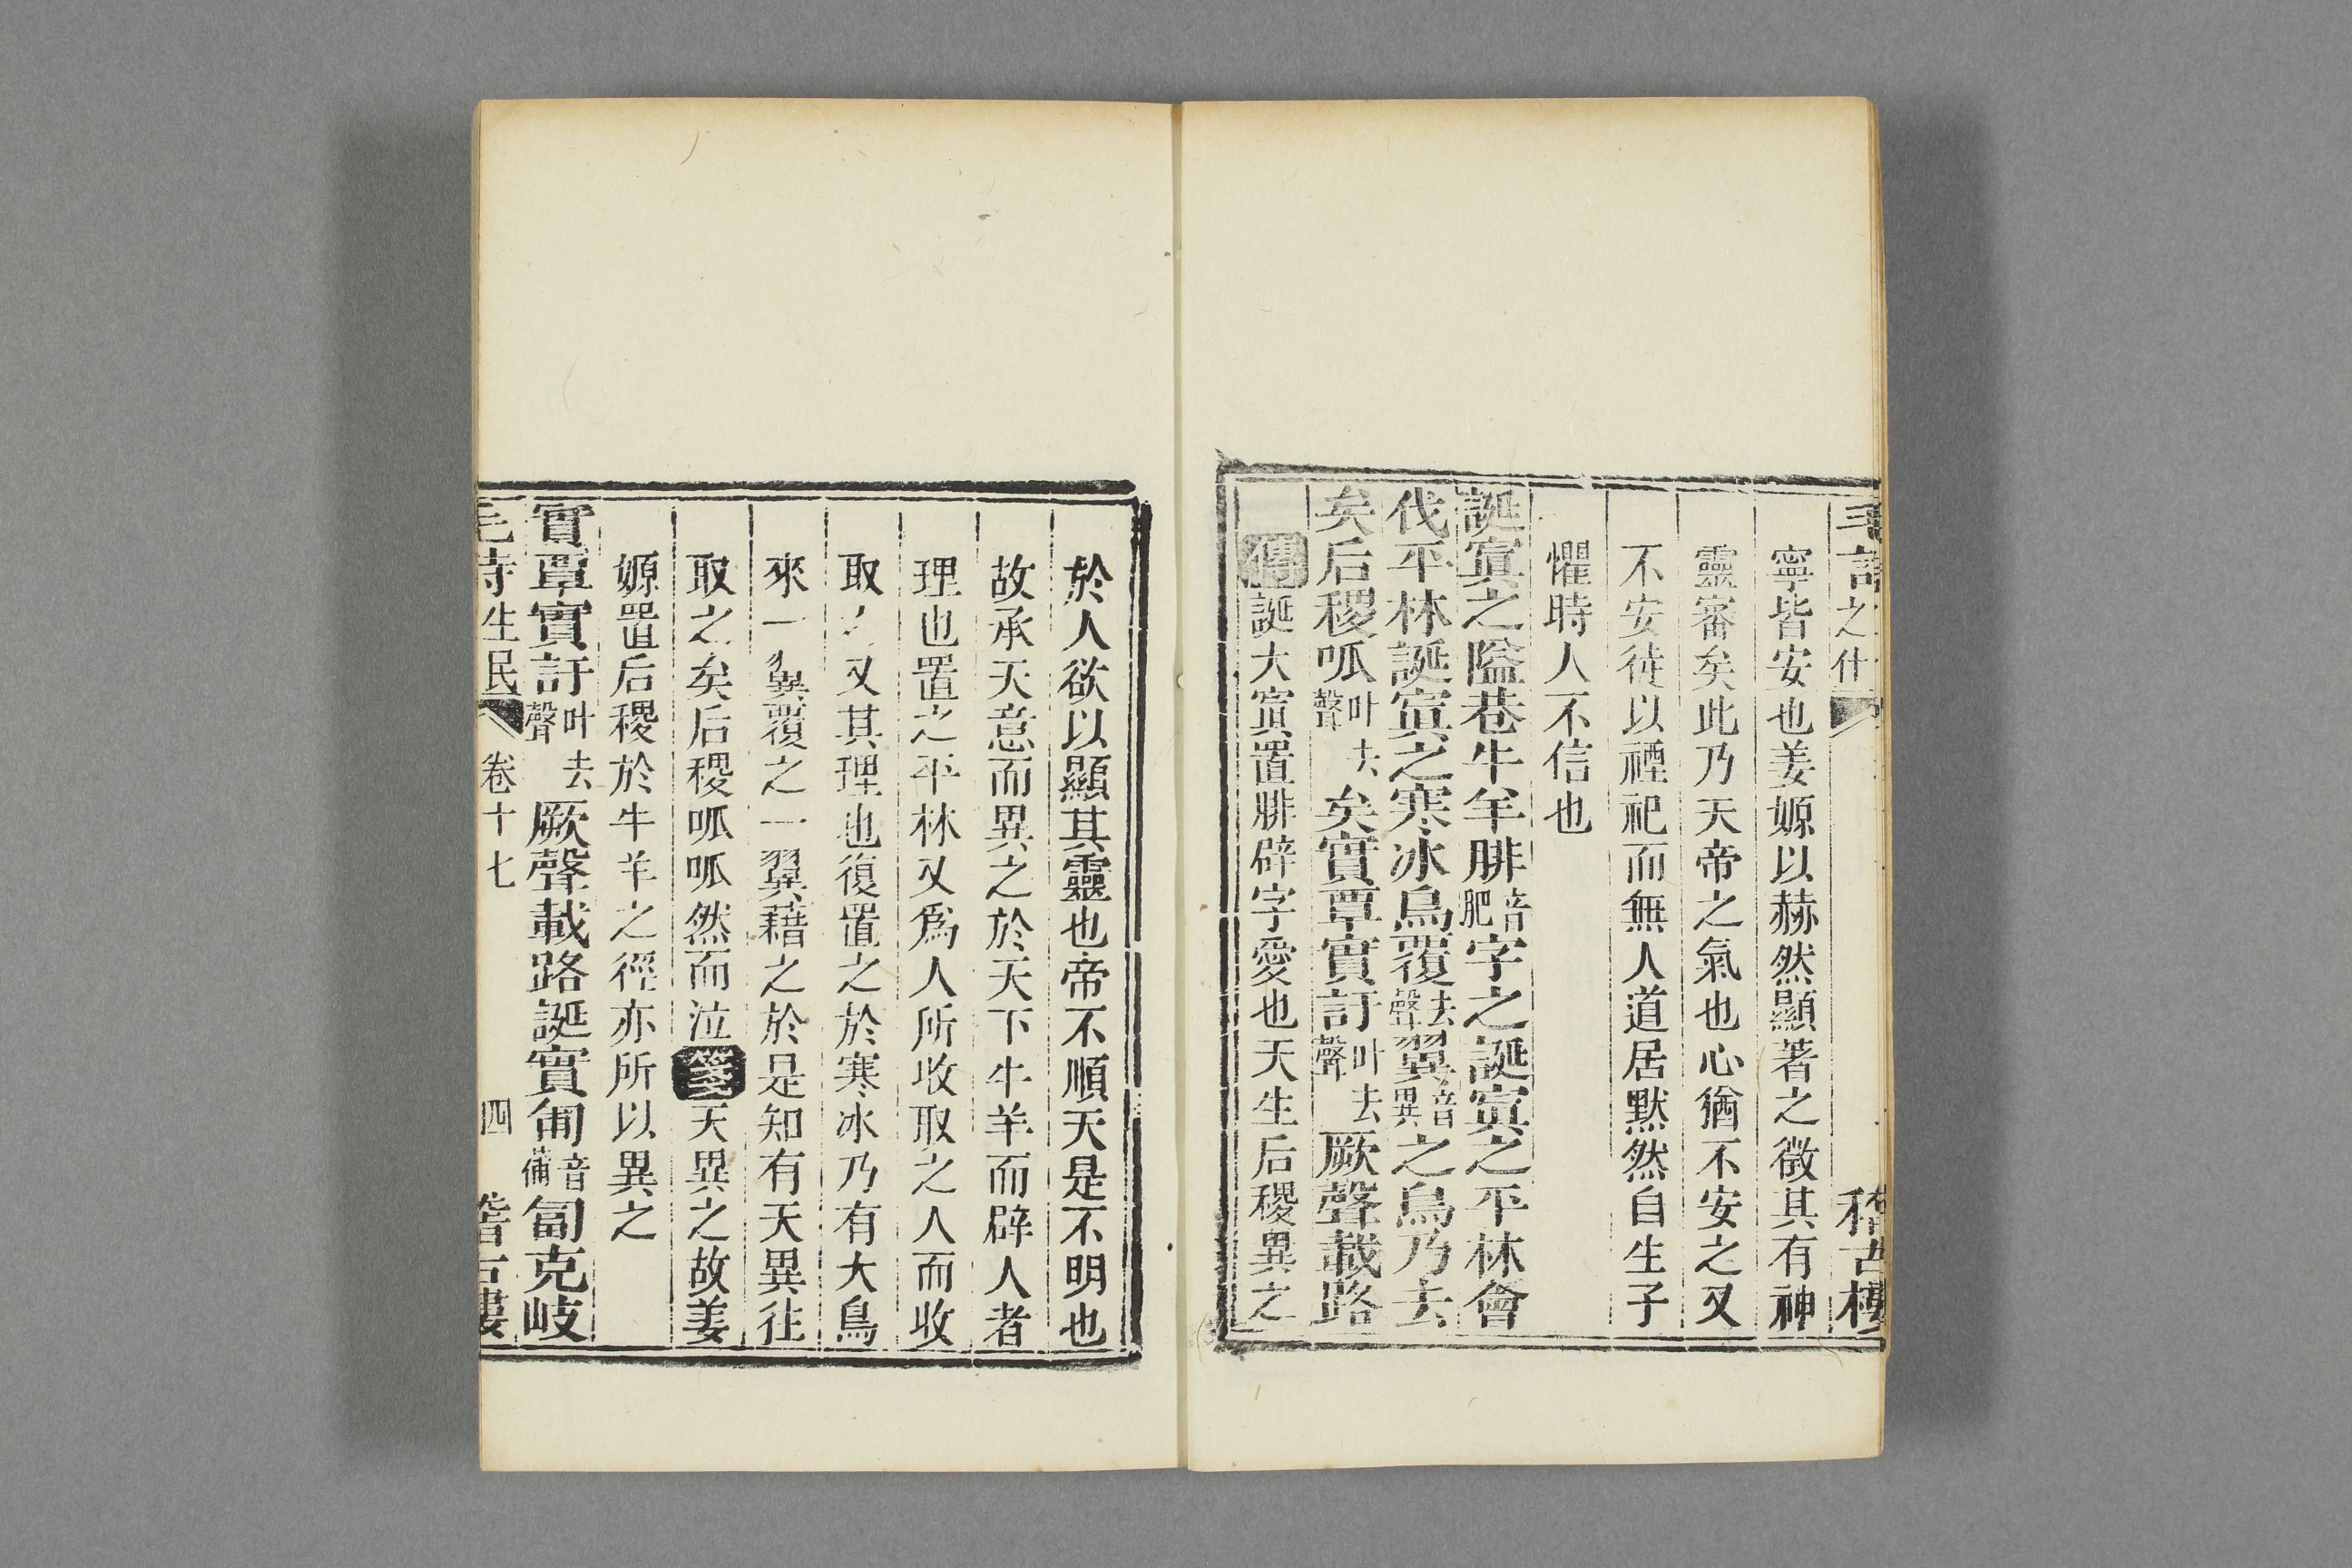 毛詩之什 稽古樓
寧皆安也姜嫄以赫然顯著之徵其有神
靈審矣此乃天帝之氣也心猶不安之又
不安徒以禋祀而無人道居默然自生子
懼時人不信也
誕寘之隘巷牛羊腓音肥字之誕寘之平林會
伐平林誕寘之寒冰鳥覆去聲翼音異之鳥乃去
矣后稷呱叶去聲矣實覃實訏叶去聲厥聲載路
傳誕大寘置腓辟字愛也天生后稷異之
於人欲以顯其靈也帝不順天是不明也
故承天意而異之於天下牛羊而辟人者
理也置之平林又爲人所收取之人而收
取之又其理也復置之於寒冰乃有大鳥
來一翼覆之一翼藉之於是知有天異往
取之矣后稷呱呱然而泣箋天異之故姜
嫄置后稷於牛羊之徑亦所以異之
實覃實訏叶去聲厥聲載路誕實匍音蒲匐克岐
毛詩生民 卷十七 四 稽古樓